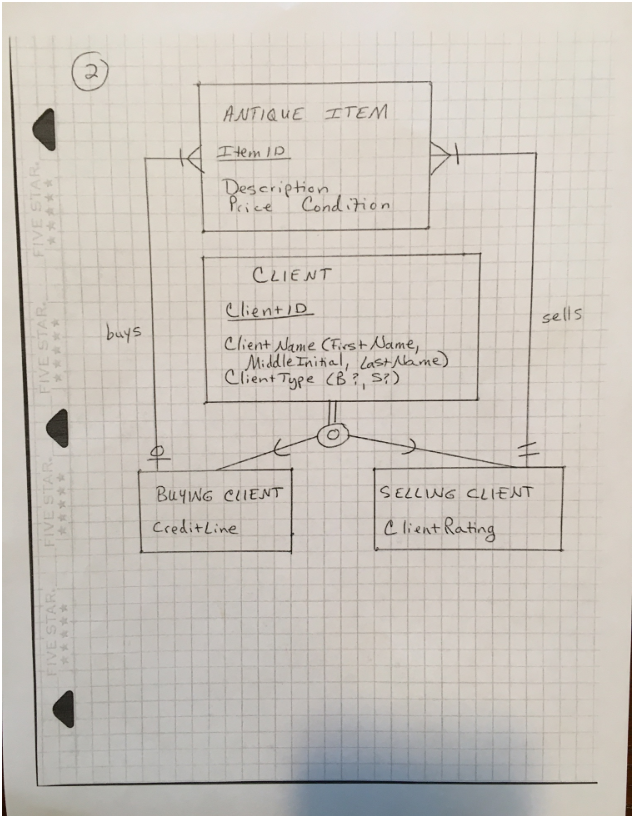 2
ANTIQUE ITEM
ItemID
Description
Price Condition
CLIENT
ClientID
ClientName (FirstName,
MiddleInitial, LastName)
ClientType (B?, S?)
buys
sells
O
BUYING CLIENT
CreditLine
SELLING CLIENT
ClientRating
FIVE STAR.
FIVE STAR.
FIVE STAR.
FIVE STAR.